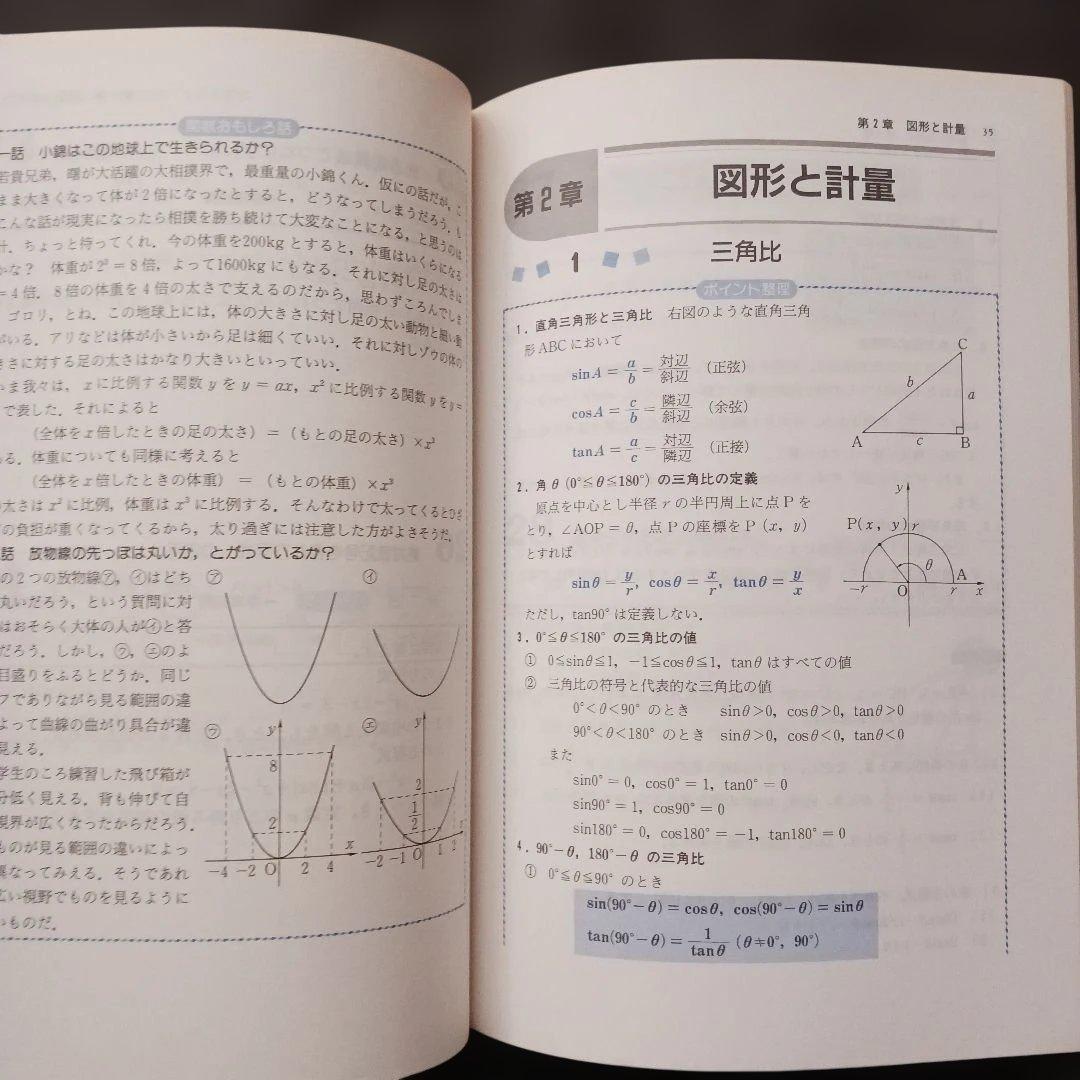 数学おもしろ話
一話 小錦はこの地球上で生きられるか?
若貴兄弟,曙が大活躍の大相撲界で,最重量の小錦くん.仮にの話だが,こ
まま大きくなって体が2倍になったとすると,どうなってしまうだろう.も
こんな話が現実になったら相撲を勝ち続けて大変なことになる,と思うのは
計.ちょっと待ってくれ.今の体重を200kgとすると,体重はいくらになる
かな? 体重が2³=8倍,よって1600kgにもなる.それに対し足の太さは
=4倍.8倍の体重を4倍の太さで支えるのだから,思わずころんでしま
ゴロリ,とね.この地球上には,体の大きさに対し足の太い動物と細い動
がいる.アリなどは体が小さいから足は細くていい.それに対しゾウの体の
きさに対する足の太さはかなり大きいといっていい.
いま我々は,xに比例する関数yをy=ax,x²に比例する関数yをy=
で表した.それによると
(全体をx倍したときの足の太さ)=(もとの足の太さ)×x²
ある.体重についても同様に考えると
(全体をx倍したときの体重)=(もとの体重)×x³
太さはx²に比例,体重はx³に比例する.そんなわけで太ってくるとひざ
の負担が重くなってくるから,太り過ぎには注意した方がよさそうだ.
話 放物線の先っぽは丸いか,とがっているか?
の2つの放物線㋐,㋑はどち
丸いだろう,という質問に対
はおそらく大体の人が㋑と答
だろう.しかし,㋒,㋓のよ
目盛りをふるとどうか.同じ
フでありながら見る範囲の違
よって曲線の曲がり具合が違
見える.
学生のころ練習した飛び箱が
分低く見える.背も伸びて自
視界が広くなったからだろう.
ものが見る範囲の違いによっ
異なってみえる.そうであれ
広い視野でものを見るように
いものだ.
㋐
㋑
㋒
y
8
2
x
-4 -2 O 2 4
㋓
y
2
1/2
x
-2 -1 O 1 2
第2章 図形と計量 35
第2章
図形と計量
1 三角比
ポイント整理
1.直角三角形と三角比 右図のような直角三角
形ABCにおいて
sinA=a/b=対辺/斜辺 (正弦)
cosA=c/b=隣辺/斜辺 (余弦)
tanA=a/c=対辺/隣辺 (正接)
C
b
a
A
c
B
2.角θ(0°≦θ≦180°)の三角比の定義
原点を中心とし半径rの半円周上に点Pを
とり,∠AOP=θ,点Pの座標をP(x, y)
とすれば
sinθ=y/r, cosθ=x/r, tanθ=y/x
ただし,tan90°は定義しない.
y
P(x, y) r
θ
A
-r O r x
3.0°≦θ≦180°の三角比の値
① 0≦sinθ≦1,-1≦cosθ≦1,tanθはすべての値
② 三角比の符号と代表的な三角比の値
0°<θ<90°のとき sinθ>0,cosθ>0,tanθ>0
90°<θ<180°のとき sinθ>0,cosθ<0,tanθ<0
また
sin0°=0,cos0°=1,tan0°=0
sin90°=1,cos90°=0
sin180°=0,cos180°=-1,tan180°=0
4.90°-θ,180°-θの三角比
① 0°≦θ≦90°のとき
sin(90°-θ)=cosθ,cos(90°-θ)=sinθ
tan(90°-θ)=1/tanθ (θ≠0°,90°)